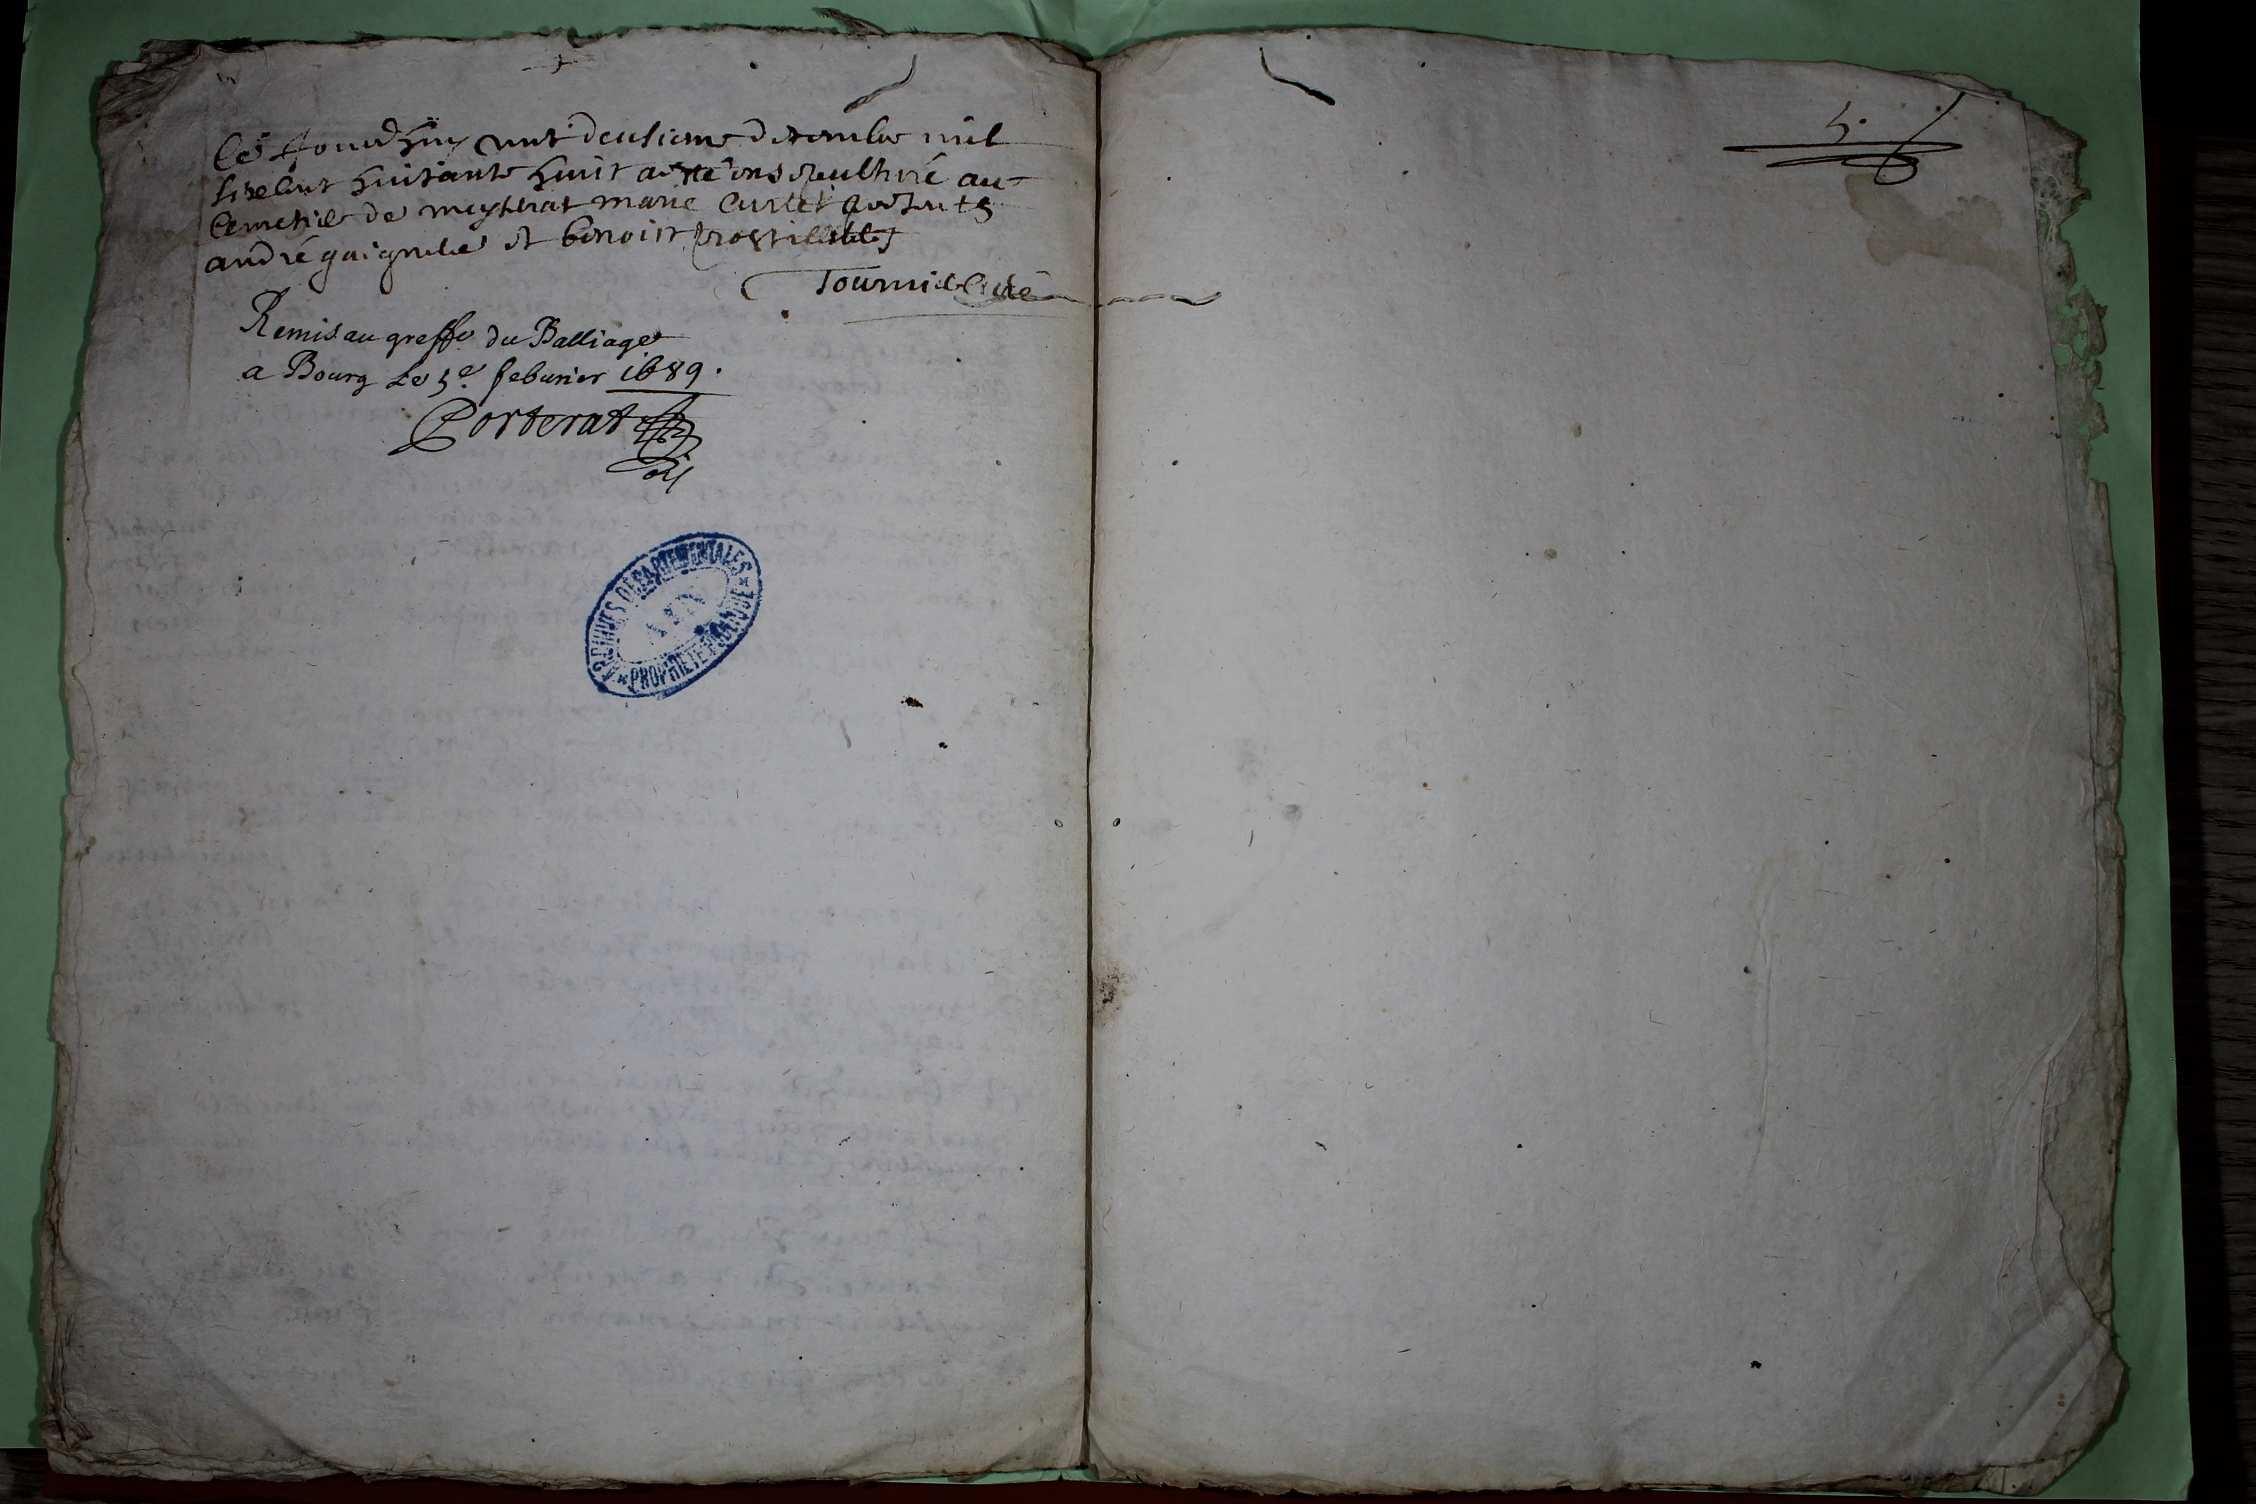 Ce Jourdhuy vint deusieme decembre mil
sisecent huitante huit a este ensepulturé au
cemetiere de meysseriat marie Curtet presents
andré et benoist
Tournier Curé
Remis au greffe du Balliage
a Bourg Le 5e. feburier 1689.
Porterat
5.
ARCHIVES DÉPARTEMENTALES
AIN
PROPRIÉTÉ PUBLIQUE